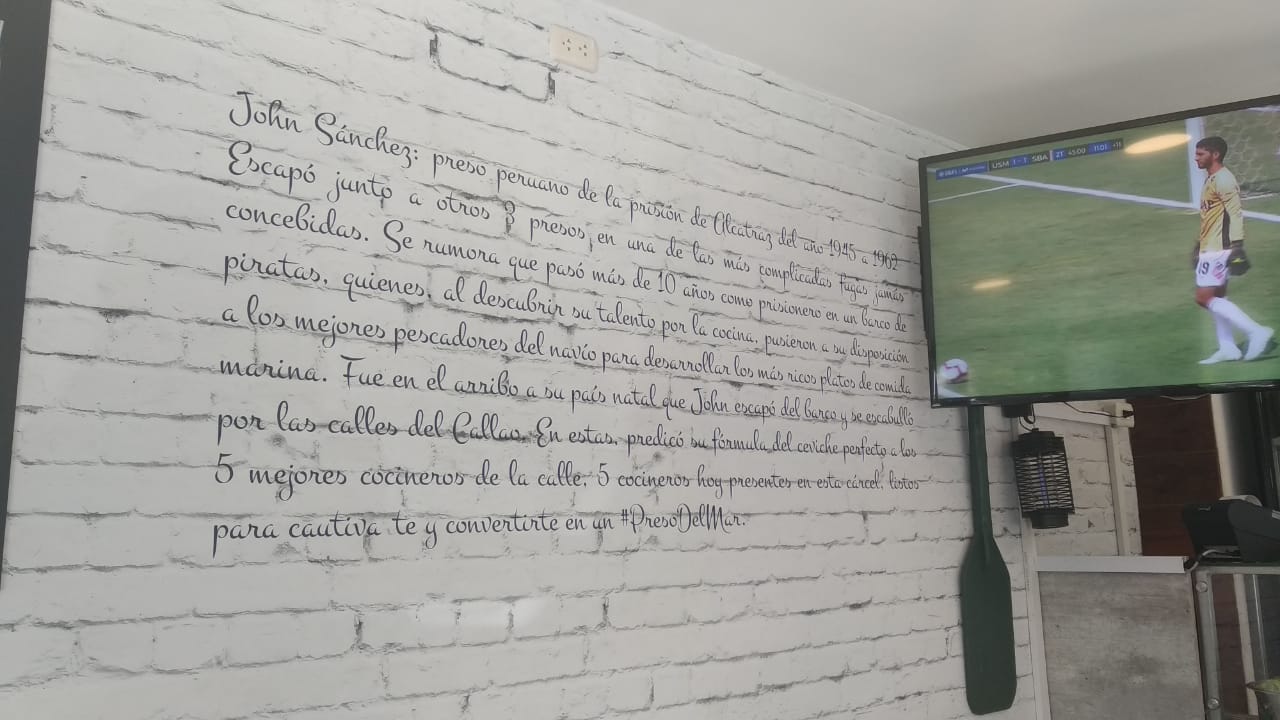 John Sánchez: preso peruano de la prisión de Alcatraz del año 1945 a 1962
Escapó junto a otros 3 presos, en una de las más complicadas fugas jamás
concebidas. Se rumora que pasó más de 10 años como prisionero en un barco de
piratas, quienes, al descubrir su talento por la cocina, pusieron a su disposición
a los mejores pescadores del navío para desarrollar los más ricos platos de comida
marina. Fue en el arribo a su país natal que John escapó del barco y se escabulló
por las calles del Callao. En estas, predicó su fórmula del ceviche perfecto a los
5 mejores cocineros de la calle. 5 cocineros hoy presentes en esta cárcel, listos
para cautiva te y convertirte en un #PresoDelMar.
USM 1 - 1 SBA 2T 45:00 11:01 +11
19